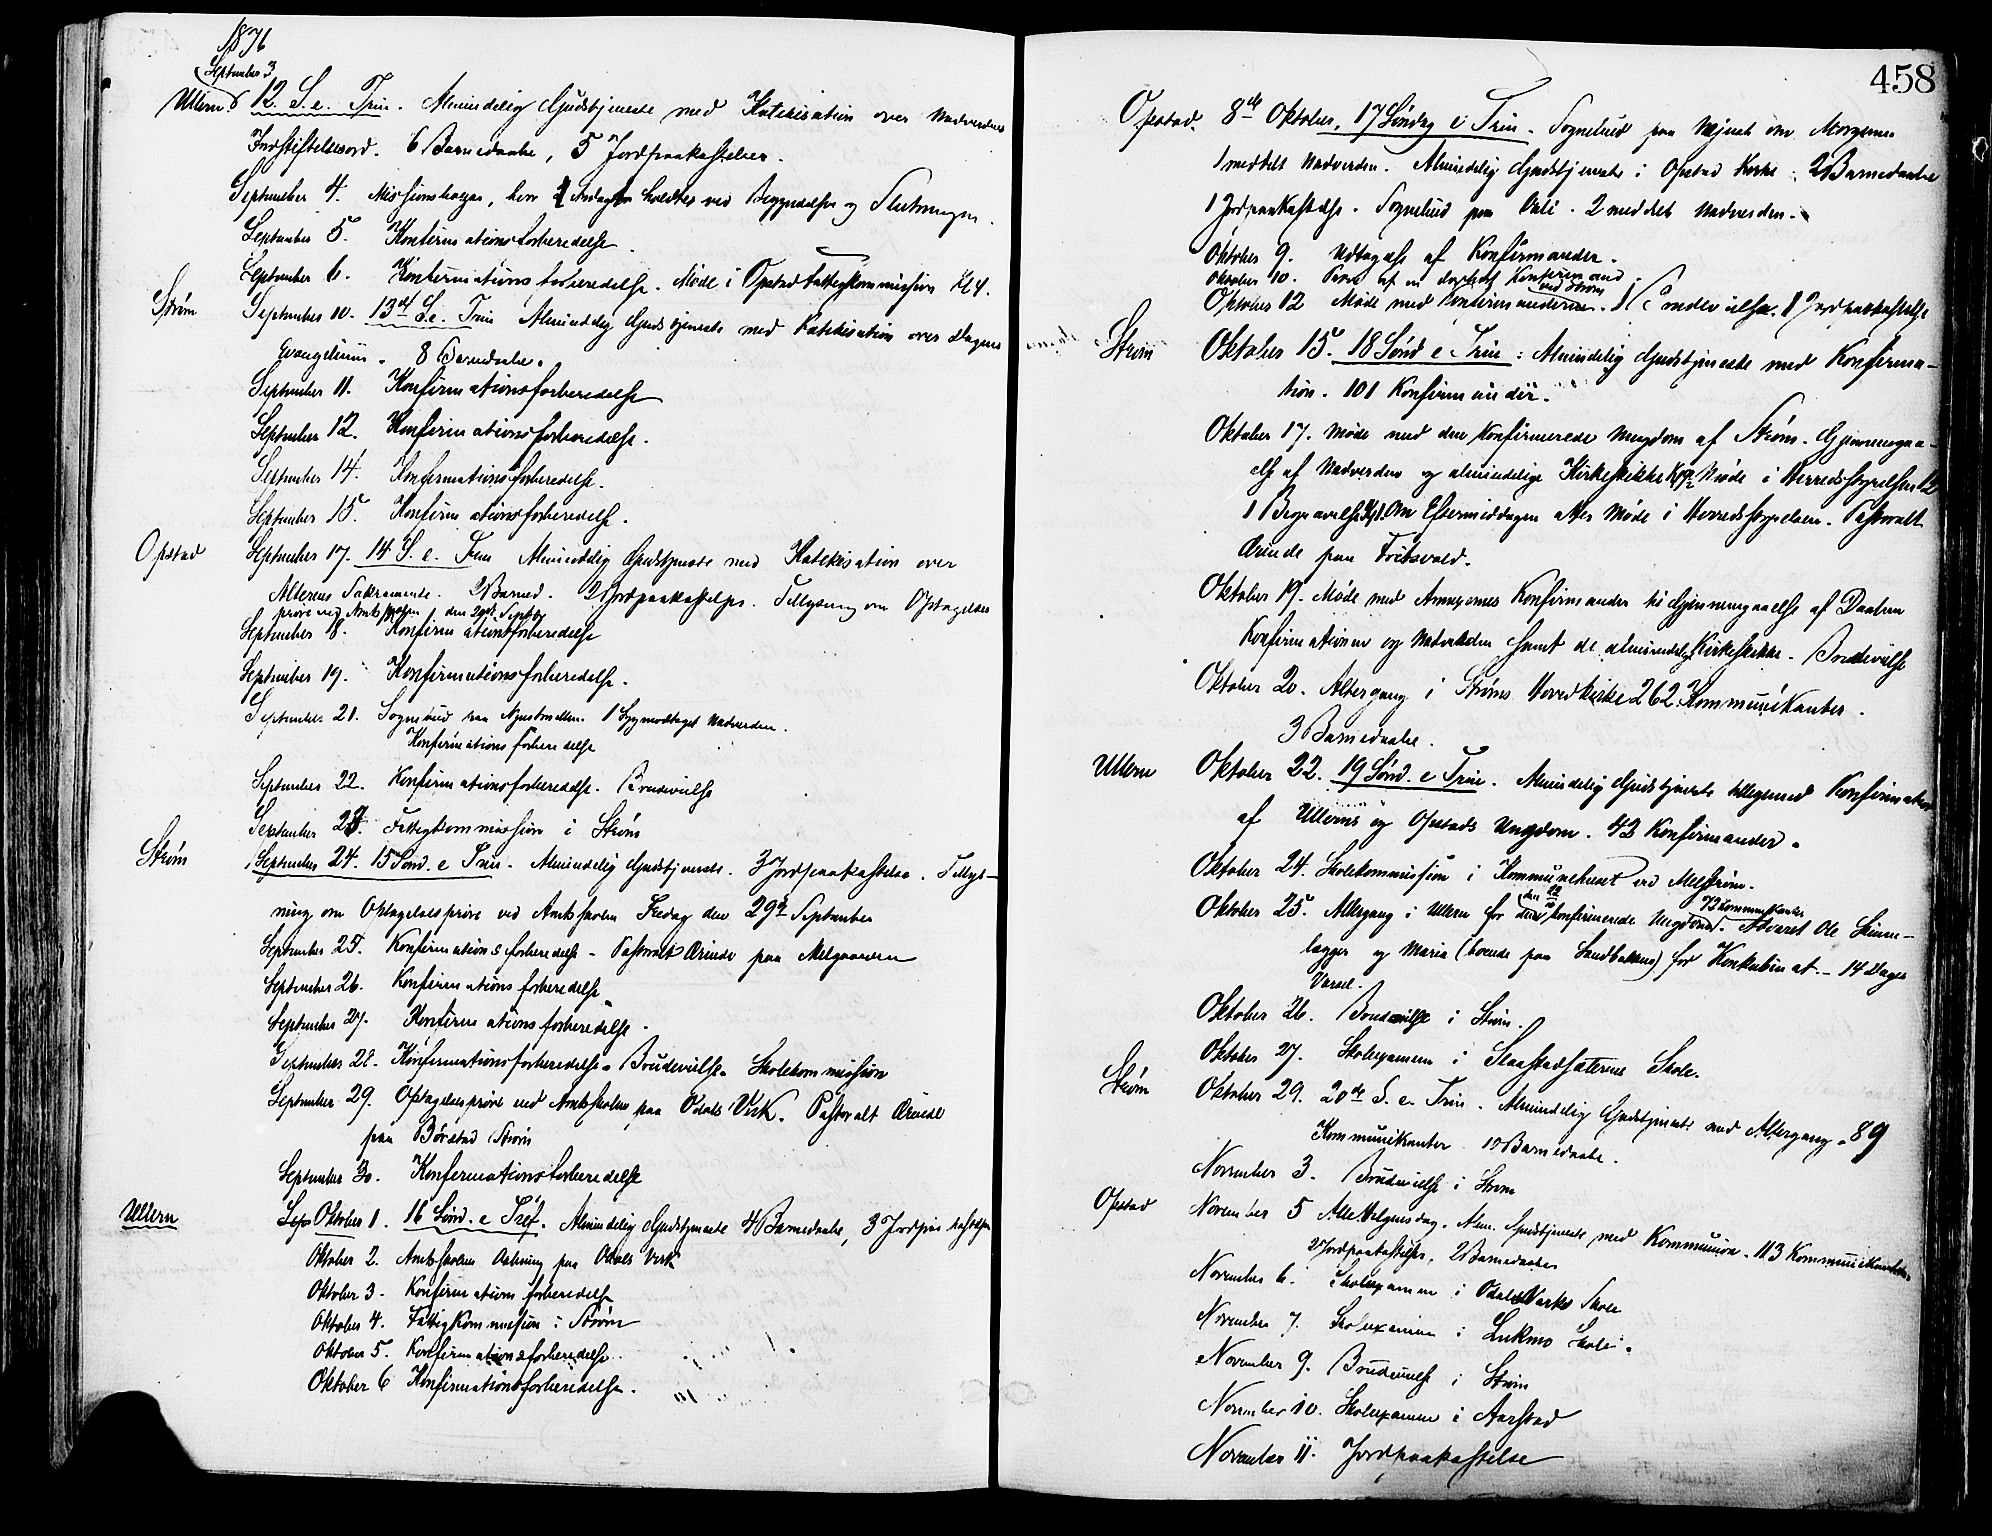 1876
September 3
Ullern 12. S. e. Trin. Almindelig Gudstjeneste med Katekisation over Nadverdens
Indstiftelsesord. 6 Barnedaabe, 5 Jordpaakastelser.
September 4. Missionsbazar, hvor Andagt holdtes ved Begyndelsen og Slutningen.
September 5. Konfirmationsforberedelse.
September 6. Konfirmationsforberedelse. Møde i Opstad Fattigkommission Kl 4.
Strøm September 10. 13de S. e. Trin Almindelig Gudstjeneste med Katekisation over Dagens
Evangelium. 8 Barnedaabe.
September 11. Konfirmationsforberedelse
September 12. Konfirmationsforberedelse.
September 14. Konfirmationsforberedelse.
September 15. Konfirmationsforberedelse.
Opstad September 17. 14 S. e. Trin Almindelig Gudstjeneste med Katekisation over
Alterens Sakramente. 2 Barned. 2 Jordpaakastelser. Tillysning om Optagelses
prøve ved Amtsskolen den 29de Septbr
September 18. Konfirmationsforberedelse
September 19. Konfirmationsforberedelse.
September 21. Sognebud paa 1 Syg modtaget Nadverden.
Konfirmationsforberedelse
September 22. Konfirmationsforberedelse. Brudevielse
September 23. Fattigkommission i Strøm
Strøm September 24. 15 Sønd. e Trin. Almindelig Gudstjeneste. 3 Jordpaakastelse. Tillys-
ning om Optagelsesprøve ved Amtsskolen Fredag den 29de September
September 25. Konfirmationsforberedelse - Pastoralt Ærinde paa Melgaarden
September 26. Konfirmationsforberedelse
September 27. Konfirmationsforberedelse.
September 28. Konfirmationsforberedelse. Brudevielse. Skolekommission
September 29. Optagelsesprøve ved Amtsskolen paa Odals Værk. Pastoralt Ærinde
paa Børstad Strøm
September 30. Konfirmationsforberedelse
Ullern Sept Oktober 1. 16 Sønd. e Tref. Almindelig Gudstjeneste 4 Barnedaabe, 3 Jordpaakastelser
Oktober 2. Amtsskolens Aabning paa Odals Værk
Oktober 3. Konfirmationsforberedelse
Oktober 4. Fattigkommission i Strøm
Oktober 5. Konfirmationsforberedelse.
Oktober 6 Konfirmationsforberedelse.
458
Opstad. 8de Oktober, 17 Søndag e Trin. Sognebud paa om Morgenen
1 meddelt Nadverden. Almindelig Gudstjeneste i Opstad Kirke. 2 Barnedaabe
1 Jordpaakastelse. Sognebud paa 2 meddelt Nadverden.
Oktober 9. Udtagelse af Konfirmander.
Oktober 10. Prøve af en Konfirmand.
Oktober 12 Møde med Konfirmanderne ved Strøm. 1 Brudevielse. 1 Jordpaakastelse
Strøm Oktober 15. 18 Sønd e Trin: Almindelig Gudstjeneste med Konfirma-
tion. 101 Konfirmander.
Oktober 17. Møde med den Konfirmerede Ungdom af Strøm. Gjennemgaa-
else af Nadverden og almindelige Kirkeskikke Møde i Herredsstyrelsen 12
1 Begravelse Om Eftermiddagen atter Møde i Herredsstyrelsen. Pastoralt
Ærinde paa
Oktober 19. Møde med Annexernes Konfirmander til Gjennemgaaelse af Daaben
Konfirmationen og Nadverden samt de almindelige Kirkeskikke. Brudevielse
Oktober 20. Altergang i Strøms Hovedkirke 262 Kommunikanter.
3 Barnedaabe.
Ullern Oktober 22. 19 Sønd. e Trin. Almindelig Gudstjeneste tilligemed Konfirmation
af Ullerns og Opstads Ungdom. 42 Konfirmander.
Oktober 24. Skolekommission i Kommunehuset ved
Oktober 25. Altergang i Ullern for den konfirmerede Ungdom. 73 Kommunikanter Advaret Ole
og Maria (boende paa Sandbakken) for Konkubinat - 14 Dages
Varsel.
Oktober 26. Brudevielse i Strøm.
Oktober 27. Skolexamen i Skole.
Strøm Oktober 29. 20de S. e. Trin. Almindelig Gudstjeneste med Altergang. 89
Kommunikanter 10 Barnedaabe.
November 3. Brudevielse i Strøm
Opstad November 5 Alle Helgensdag. Alm. Gudstjeneste med Kommunion. 113 Kommunikanter
2 Jordpaakastelser, 2 Barnedaabe
November 6. Skolexamen i Odals Værks Skole
November 7. Skolexamen i Skole.
November 9. Brudevielse i Strøm
November 10. Skolexamen i Aarstad
November 11. Jordpaakastelse